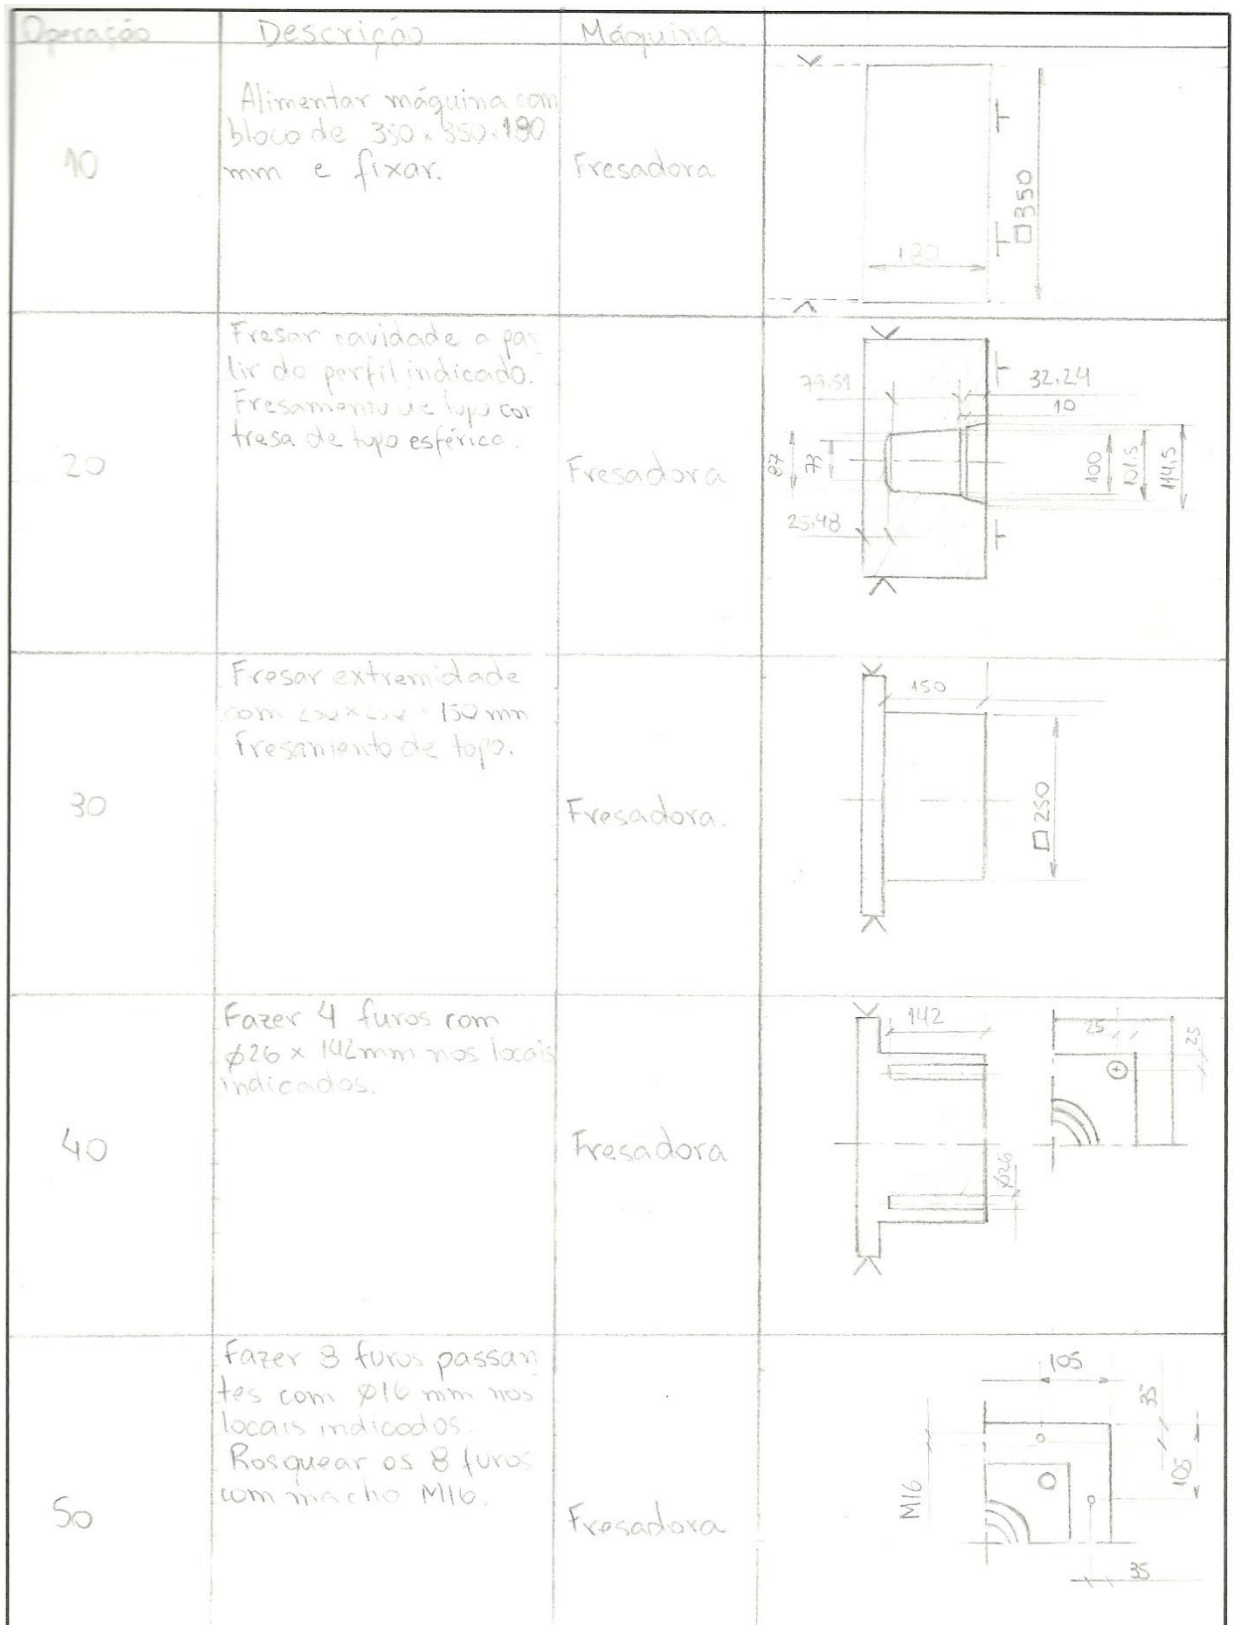 Operação Descrição Máquina
10
Alimentar máquina com
bloco de 350 x 350 x 180
mm e fixar.
Fresadora
180
□350
20
Fresar cavidade a par
tir do perfil indicado.
Fresamento de topo com
fresa de topo esférico.
Fresadora
32,24
10
87
73
25,48
100
101,5
114,5
30
Fresar extremidade
com 150 mm
Fresamento de topo.
Fresadora.
150
□250
40
Fazer 4 furos com
ø26 x 142mm nos locais
indicados.
Fresadora
142
ø26
25
25
50
Fazer 8 furos passan
tes com ø16 mm nos
locais indicados.
Rosquear os 8 furos
com macho M16.
Fresadora
105
35
M16
105
35